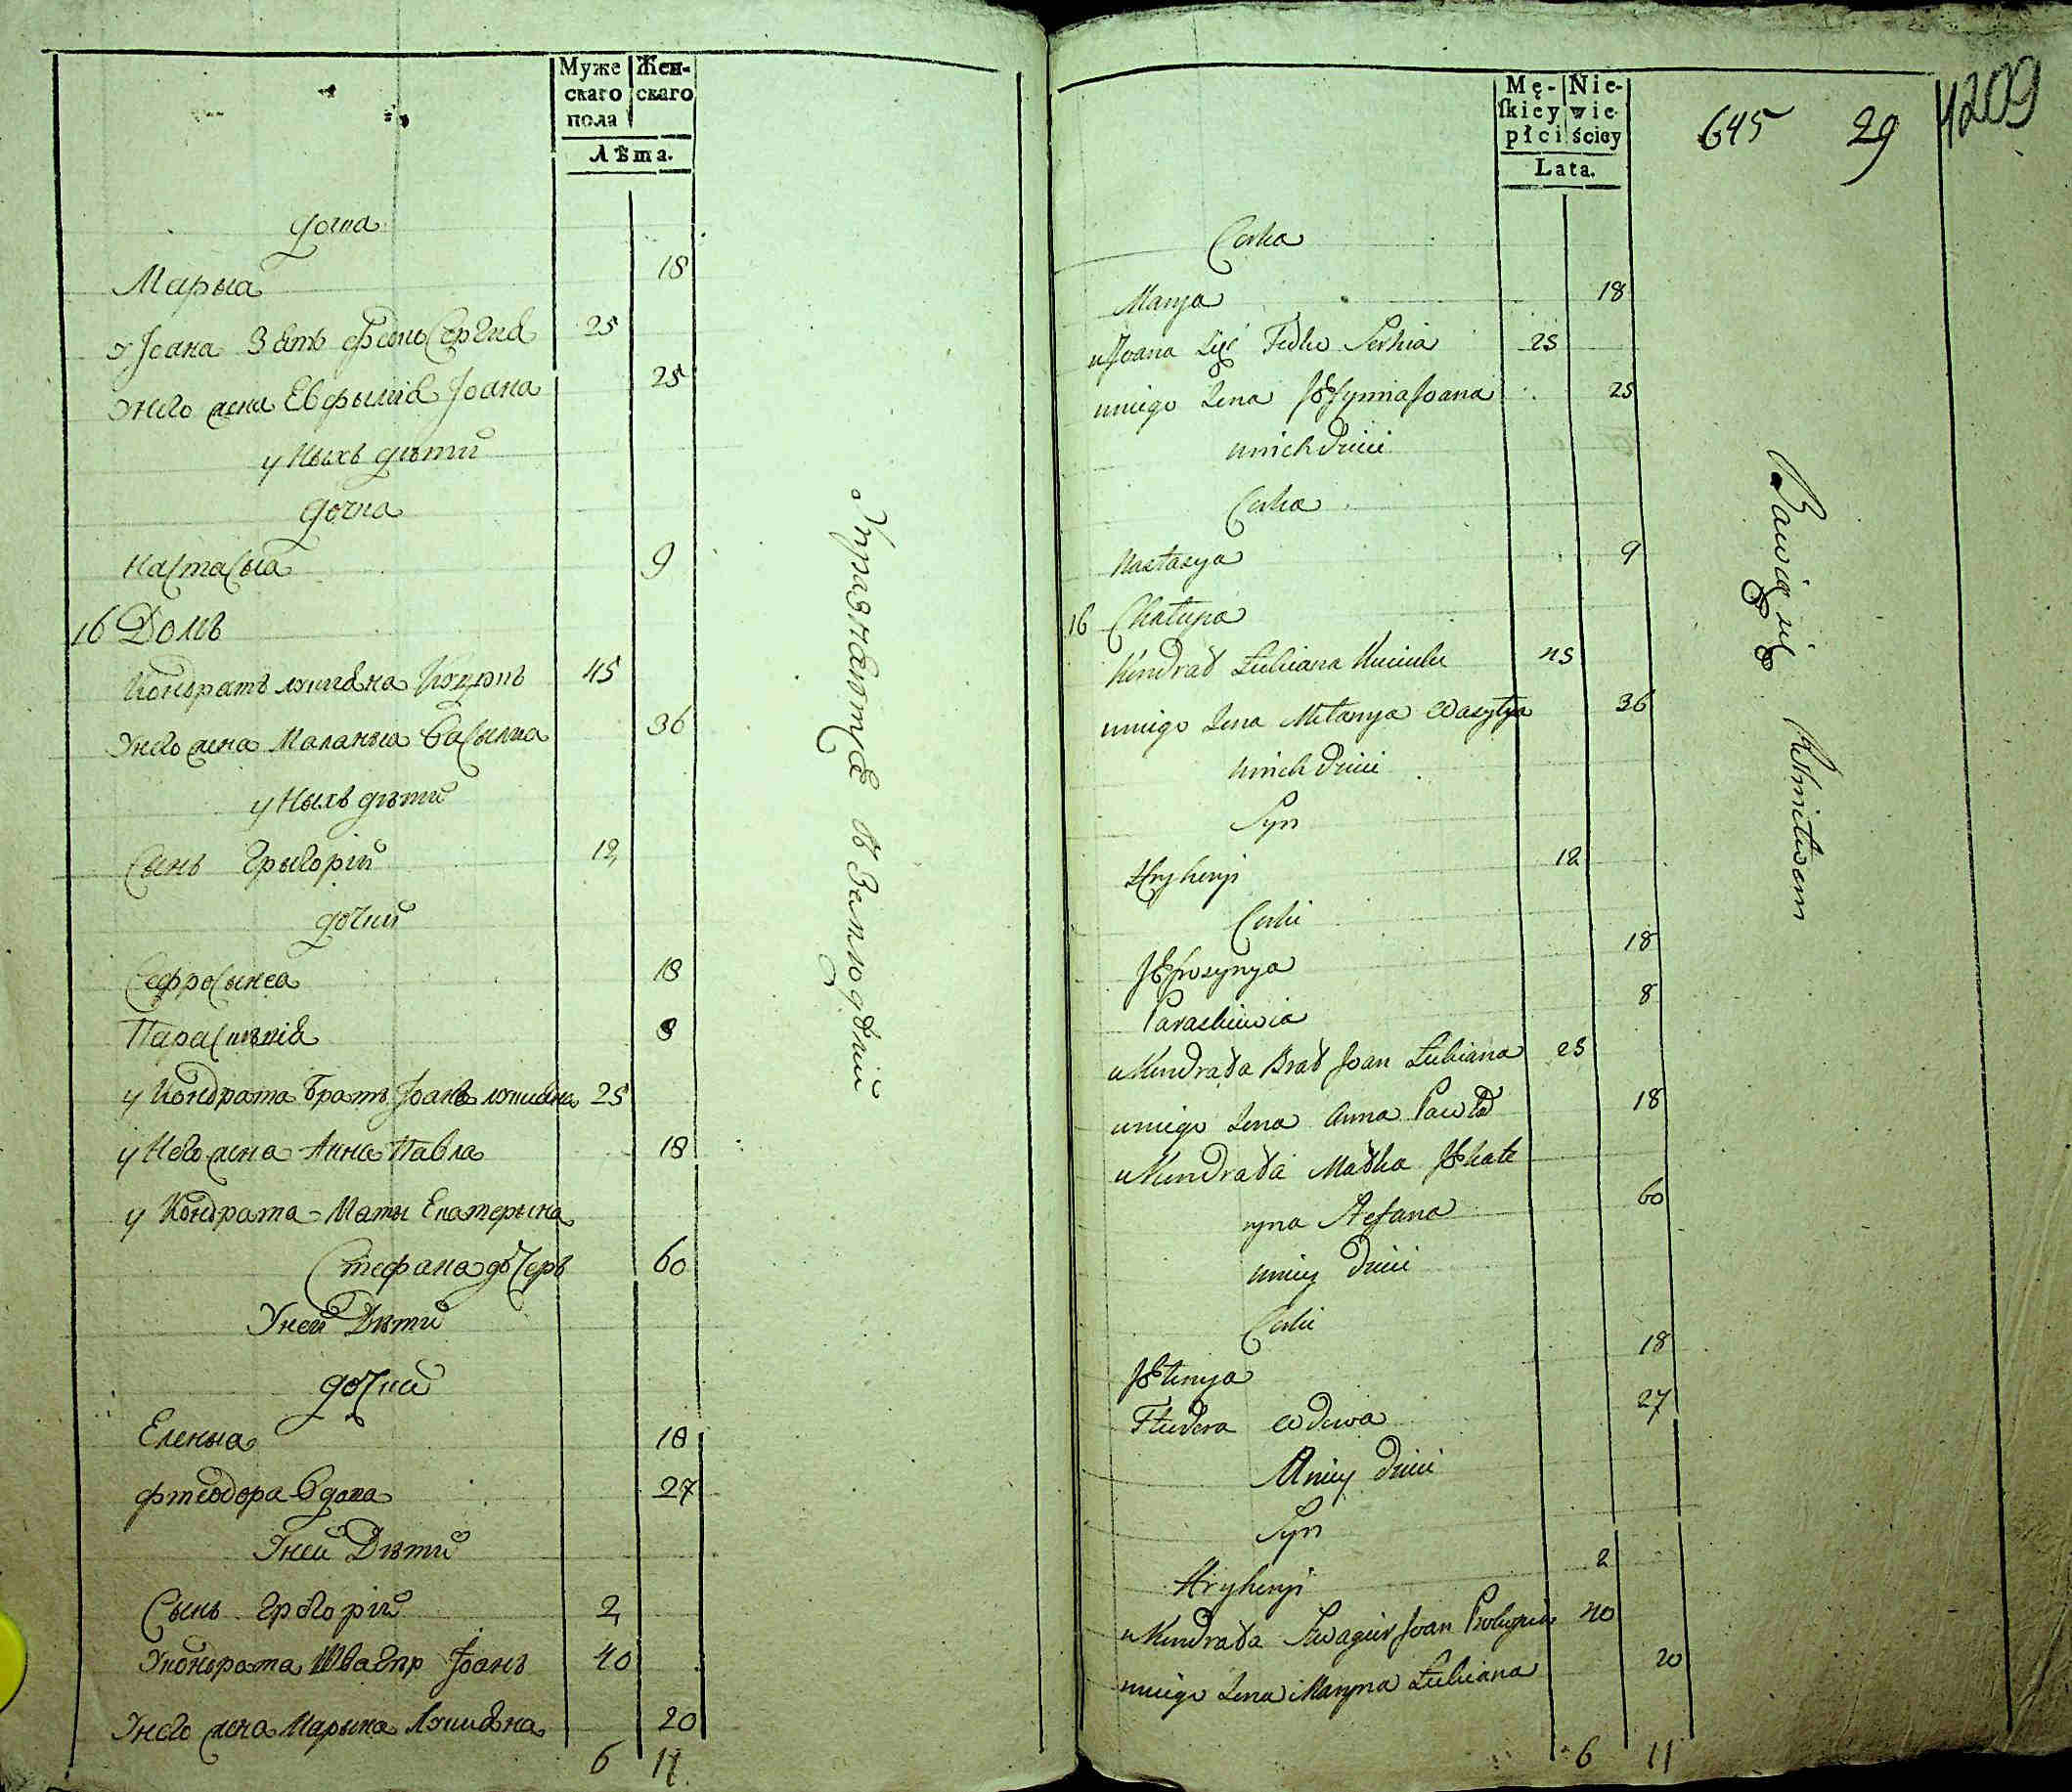 Муже
скаго
пола
Жен-
скаго
Лѣта.
дочка
Марыа 18
у Іоана Зять Федко Сергіа 25
У него жена Евфыміа Іоана 25
у Ныхъ дѣти
дочка
Настасыа 9
16 Домъ
Кондратъ Лукіана 45
У него жена Маланыа Васылыа 36
у Ныхъ дѣти
Сынъ Грыгорій 12
дочки
Сефросынеа 18
Параскевіа 8
у Кондрата Братъ Іоанъ Лукіана 25
у Него жена Анна Павла 18
у Кондрата Маты Екатерына
Стефана дочерь 60
У ней Дѣти
дочки
Еленыа 18
Фтеодора Вдова 27
У ней Дѣти
Сынъ Григорій 2
У Кондрата Швагир Іоанъ 40
У него жена Марына Лукиана 20
6 11
Упражнаютца въ Земледѣлій
Mę-
skiey
płci
Nie-
wie-
ściey
Lata.
645 29 4209
Corka
Marya 18
u Joana Zięć Fedko Serhia 25
u niego Żena Joana 25
u nich dzieci
Corka
Nastasya 9
16 Chałupa
Kondrad Łukiana Kuciuk 45
u niego Żena Mełanya Wasyłya 36
u nich dzieci
Syn
Hryhoryi 12
Corki
Jefrosynya 18
Paraskiewia 8
u Kondrada Brad Joan Łukiana 25
u niego Żena Anna Pawła 18
u Kondrada Madka Jekate
ryna Stefana 60
u niey dzieci
Corki
Jełenya 18
Fteudora Wdowa 27
U niey dzieci
Syn
Hryhoryi 2
u Kondrada Szwagier Joan Prokopiia 40
u niego Żena Maryna Łukiana 20
6 11
Bawią się Rolnictwem